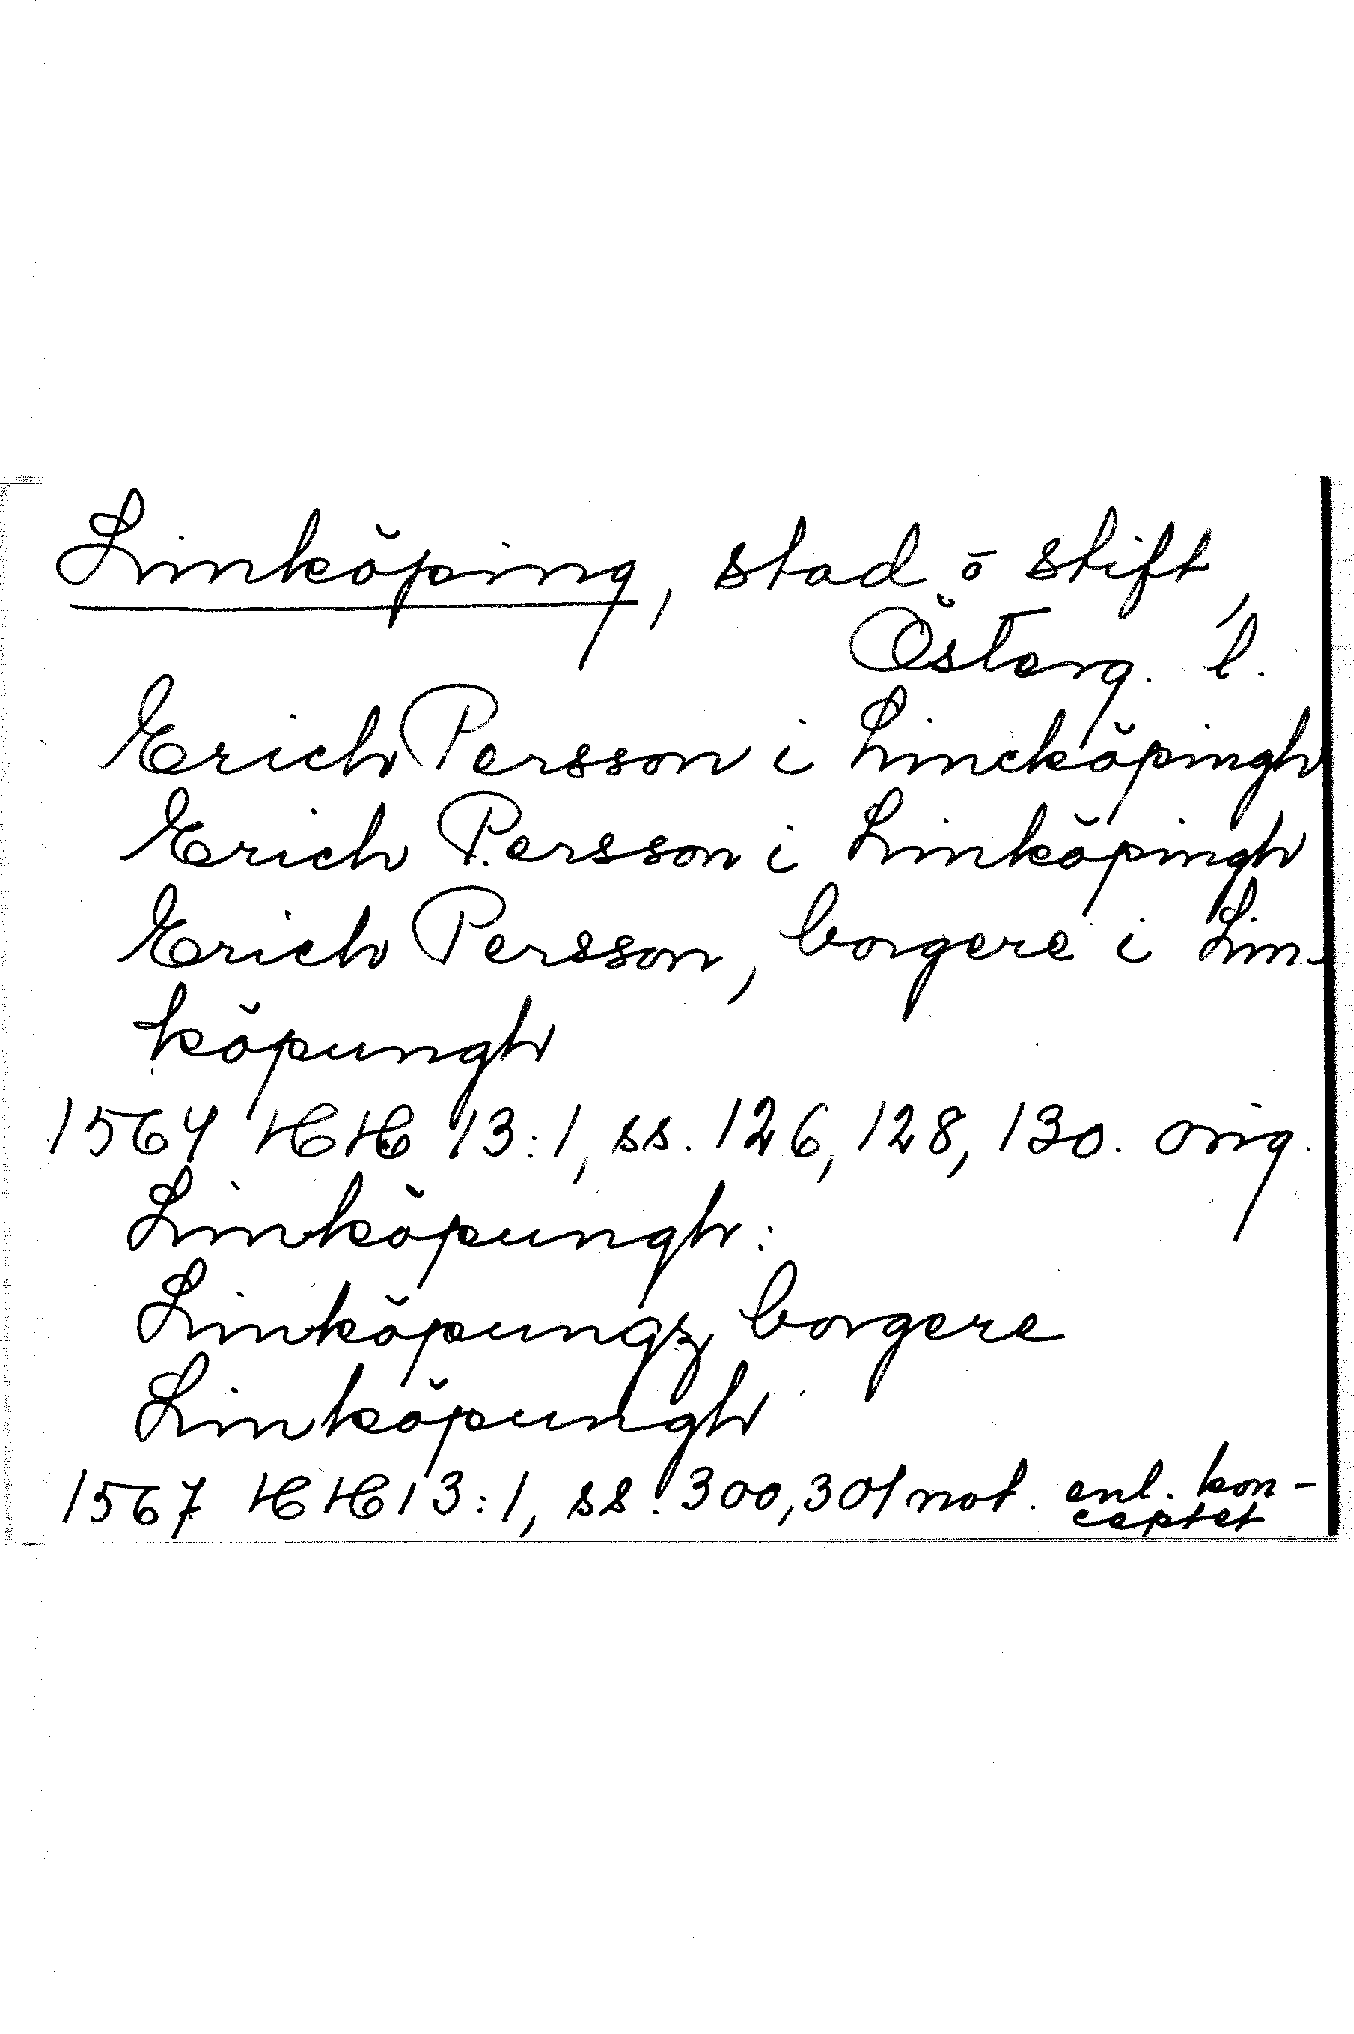 Linköping, stad o stift,
Österg. l.
Erich Persson i Lincköpingh
Erich Persson i Linköpingh
Erich Persson, borgere i Lin-
köpungh
1564 HH 13:1, ss. 126, 128, 130. orig.
Linköpungh:
Linköpungz borgere
Linköpungh
1567 HH 13:1, ss. 300, 301 not. enl. kon-
ceptet